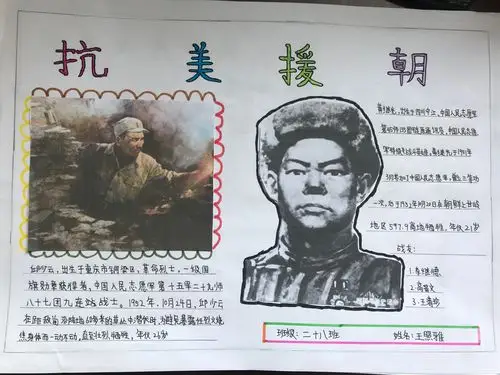 抗美援朝
邱少云,出生于重庆市铜梁区,革命烈士,一级国
旗勋章获得属,中国人民志愿军第十五军二十九师
八十七团九连战战士。1952年,10月24日,邱少云
在距敌前沿阵地60多米的草丛中潜伏时,为避免暴露任烈火烧
焦身体而一动不动,直至壮烈牺牲,年仅26岁
黄继光,出生于四川中江,中国人民志愿军
第45师135团特派通讯员,中国人民志愿
军特级战斗英雄,黄继光于1951年
3月参加了中国人民志愿军,截立三等功
一次,后于1952年,10月20日在朝鲜上甘岭
地区597.9高地牺牲,年仅21岁
战友:
班级:二十八班
姓名:王照雅